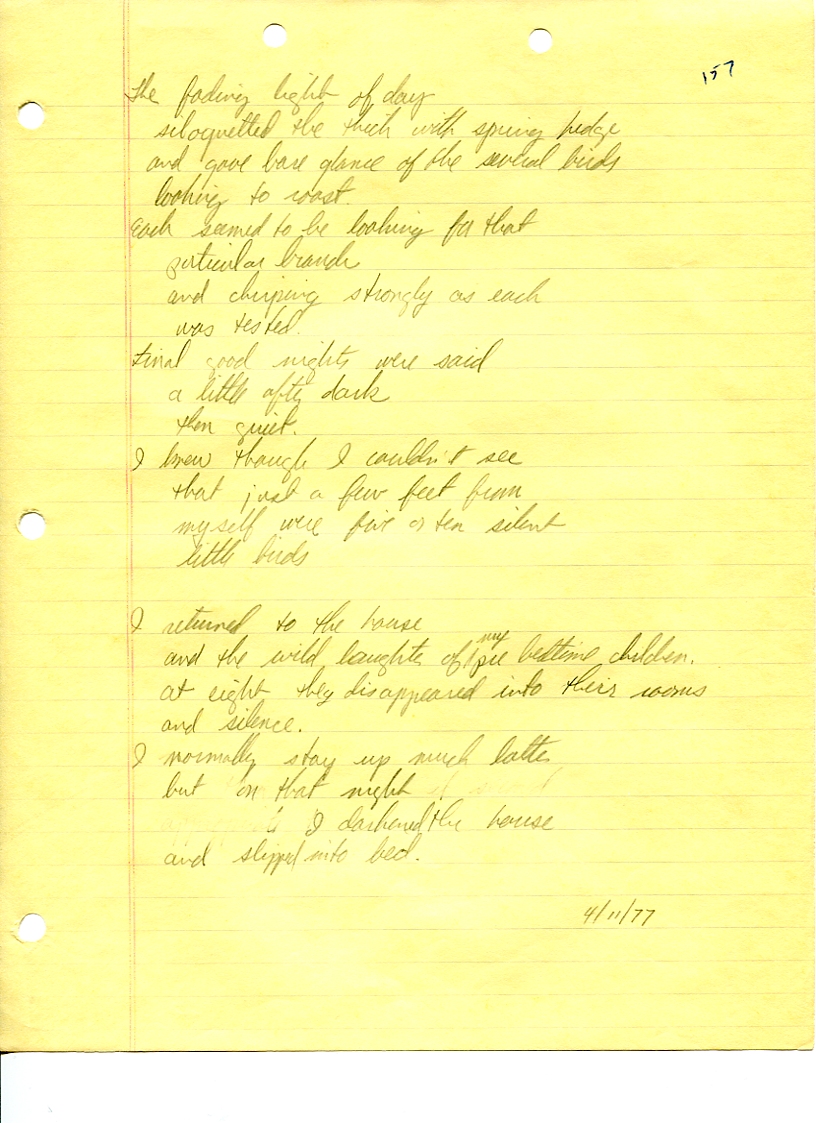 157
The fading light of day
siloquetted the thick with spring hedge
and gave bare glance of the several birds
looking to roast.
Each seemed to be looking for that
particular branch
and chirping strongly as each
was tested.
Final good nights were said
a little after dark
then quiet.
I knew though I couldn't see
that just a few feet from
myself were five or ten silent
little birds
I returned to the house
my
and the wild laughter of pre bedtime children.
at eight they disappeared into their rooms
and silence.
I normally stay up much latter
but on that night
I darkened the house
and slipped into bed.
4/11/77